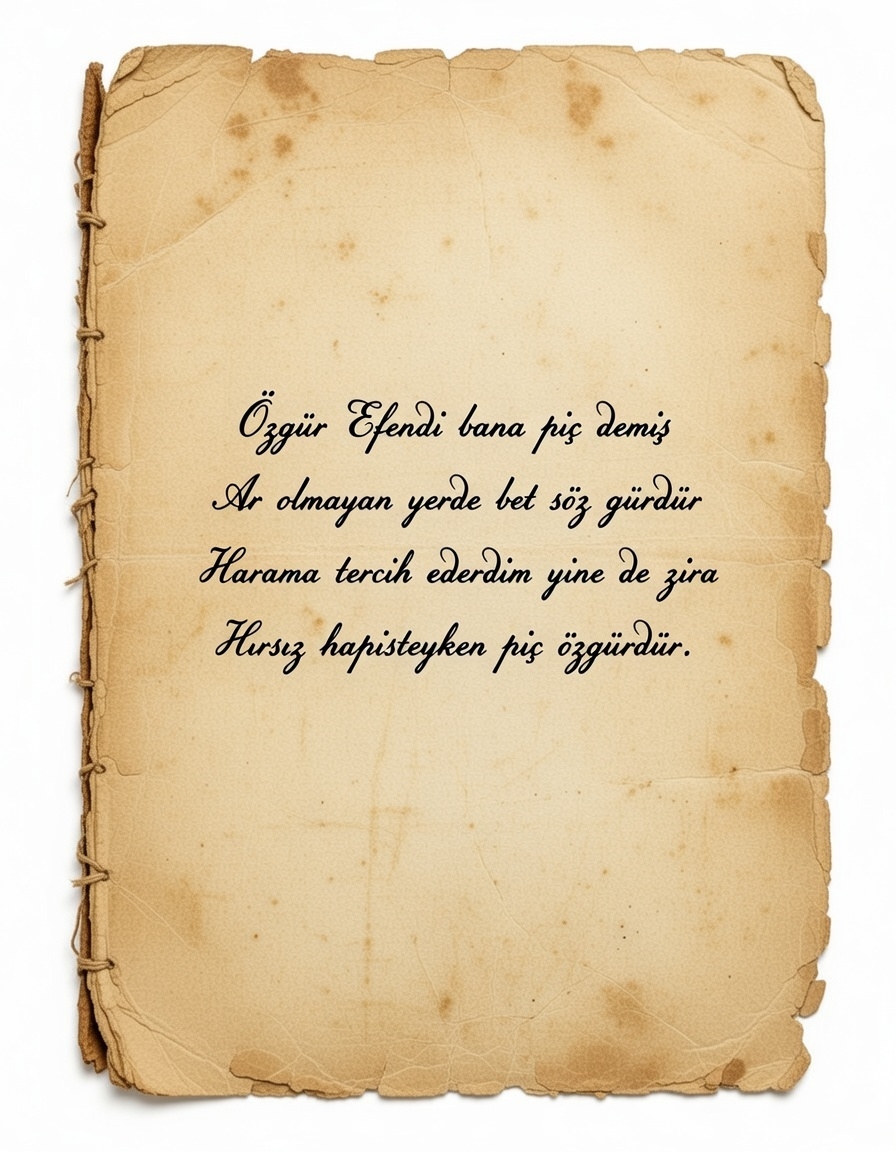 Özgür Efendi bana piç demiş
Ar olmayan yerde bet söz gürdür
Harama tercih ederdim yine de zira
Hırsız hapisteyken piç özgürdür.